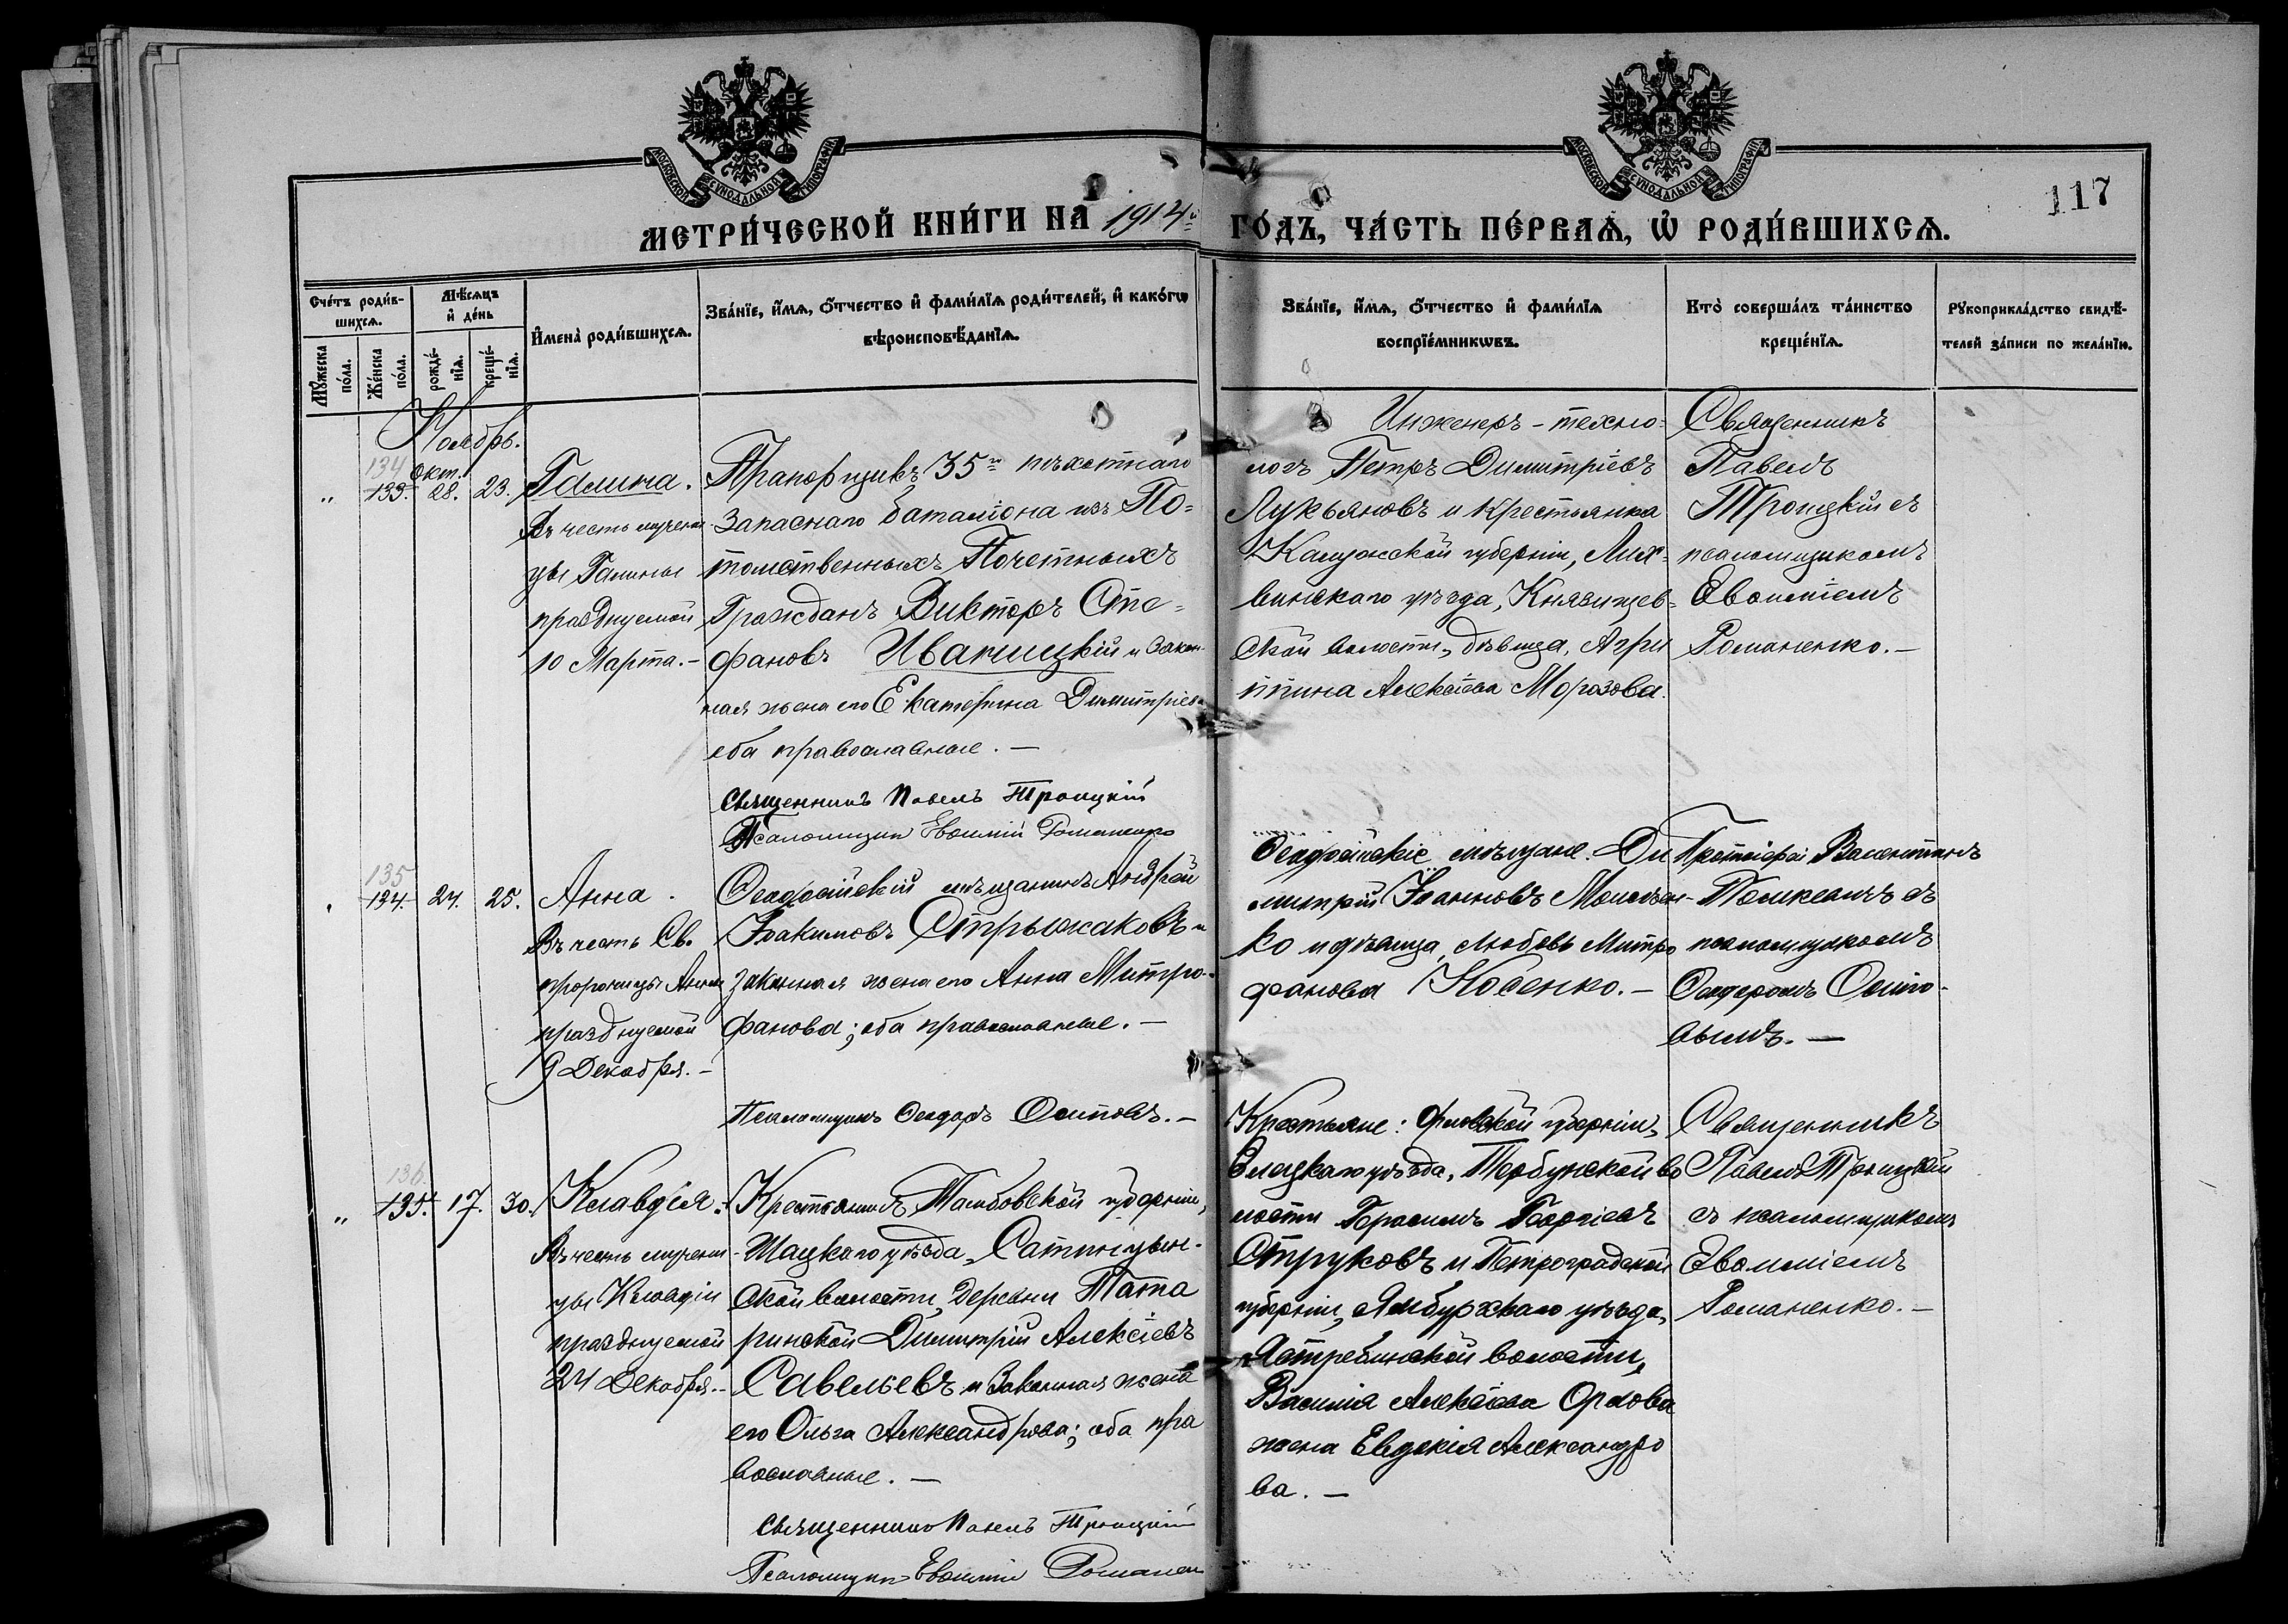 МОСКОВСКОЙ СѴНОДАЛЬНОЙ ТИПОГРАФІИ
МОСКОВСКОЙ СѴНОДАЛЬНОЙ ТИПОГРАФІИ
117
МЕТРИ́ЧЕСКОЙ КНИ́ГИ НА̀ 1914й ГО́ДЪ, ЧА́СТЬ ПЕ́РВАѦ, Ѡ҆ РОДИ́ВШИХСѦ.
Сче́тъ роди́в-
шихсѧ.
Мѣ́сѧцъ
и҆ де́нь
Мꙋ́жеска
по́ла.
Же́нска
по́ла.
рожде́-
нїѧ.
креще́-
нїѧ.
И҆мена̀ роди́вшихсѧ.
Зва́нїе, и҆́мѧ, ѻ҆́тчество и҆ фами́лїѧ роди́телей, и҆ како́гѡ
вѣроисповѣ́данїѧ.
Зва́нїе, и҆́мѧ, ѻ҆́тчество и҆ фами́лїѧ
воспрїе́мникѡвъ.
Кто̀ соверша́лъ та́инство
креще́нїѧ.
Рꙋкоприкла́дство свидѣ́-
телей за́писи по жела́нїю.
Ноябрь.
134
„ 133. Окт. 28. 23.
Галина.
Въ честь мучени
цы Галины
празднуемой
10 Марта.-
Прапорщикъ 35го пѣхотнаго
Запаснаго баталіона изъ По=
томственныхъ Почетныхъ
Гражданъ Викторъ Сте=
фановъ Иваницкій и Закон-
ная жена его Екатерина Димитріева
оба православные. —
Священникъ Павелъ Троицкій
Псаломщикъ Евѳимій Романенко
Инженеръ-техно=
логъ Петръ Димитріевъ
Лукьяновъ и Крестьянка
Калужской губерніи, Лих-
винскаго уѣзда, Князищев-
ской волости, дѣвица, Агри
ппина Алексѣева Морозова.
Священникъ
Павелъ
Троицкій съ
псаломщикомъ
Евѳиміемъ
Романенко.—
135
„ 134. 24. 25.
Анна.
Въ честь Св.
пророчицы Анны
празднуемой
9 Декабря.-
Ѳеодосійскій мѣщанинъ Андрей
Іоакимовъ Стрыжаковъ и
законная жена его Анна Митро-
фанова; оба православные.—
Псаломщикъ Ѳеодоръ Осиповъ.—
Ѳеодосійскіе мѣщане: Ди
митрій Іоанновъ Моисеен-
ко и дѣвица Любовь Митро
фанова Косенко.—
Протоіерей Валентинъ
съ
псаломщикомъ
Ѳеодоромъ Осипо-
вымъ.—
136.
„ 135. 17. 30.
Клавдія.
Въ честь мучени
цы Клавдіи
празднуемой
24 Декабря.-
Крестьянинъ Тамбовской губерніи,
Шацкаго уѣзда,
ской волости, деревни Тата
ринской Димитрій Алексіевъ
Савельевъ и Законная жена
его Ольга Александрова; оба пра
вославные.—
Священникъ Павелъ Троицкій
Псаломщикъ Евѳимій Романен
Крестьяне: Орловской губерніи,
Елецкаго уѣзда, Тербунской во
лости Герасимъ Георгіевъ
Струковъ и Петроградской
губерніи, Ямбургскаго уѣзда,
Ястребинской волости,
Василія Алексѣева Орлова
жена Евдокія Александро
ва.—
Священникъ
Павелъ Троицкій
съ псаломщикомъ
Евѳиміемъ
Романенко.—